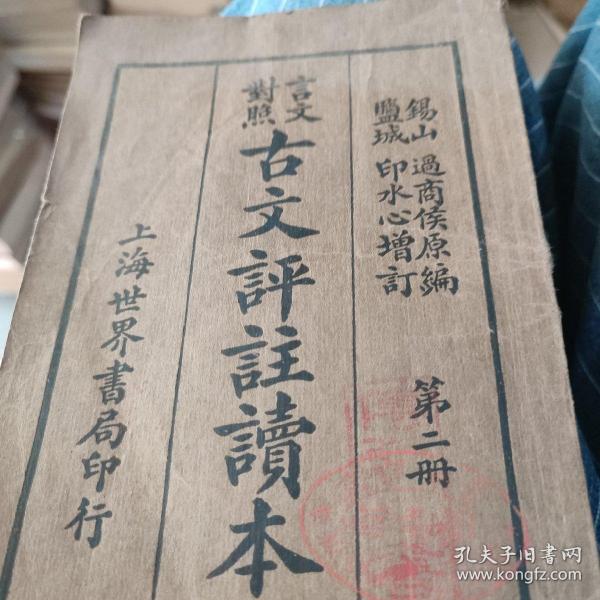 錫山 過商侯原編
鹽城 印水心增訂
第二冊
言文
對照
古文評註讀本
上海世界書局印行
孔夫子旧书网
www.kongfz.com